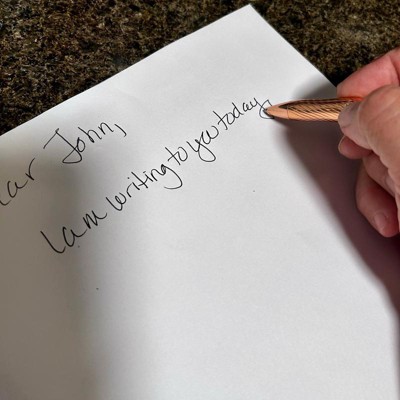 ear John,
I am writing to you today